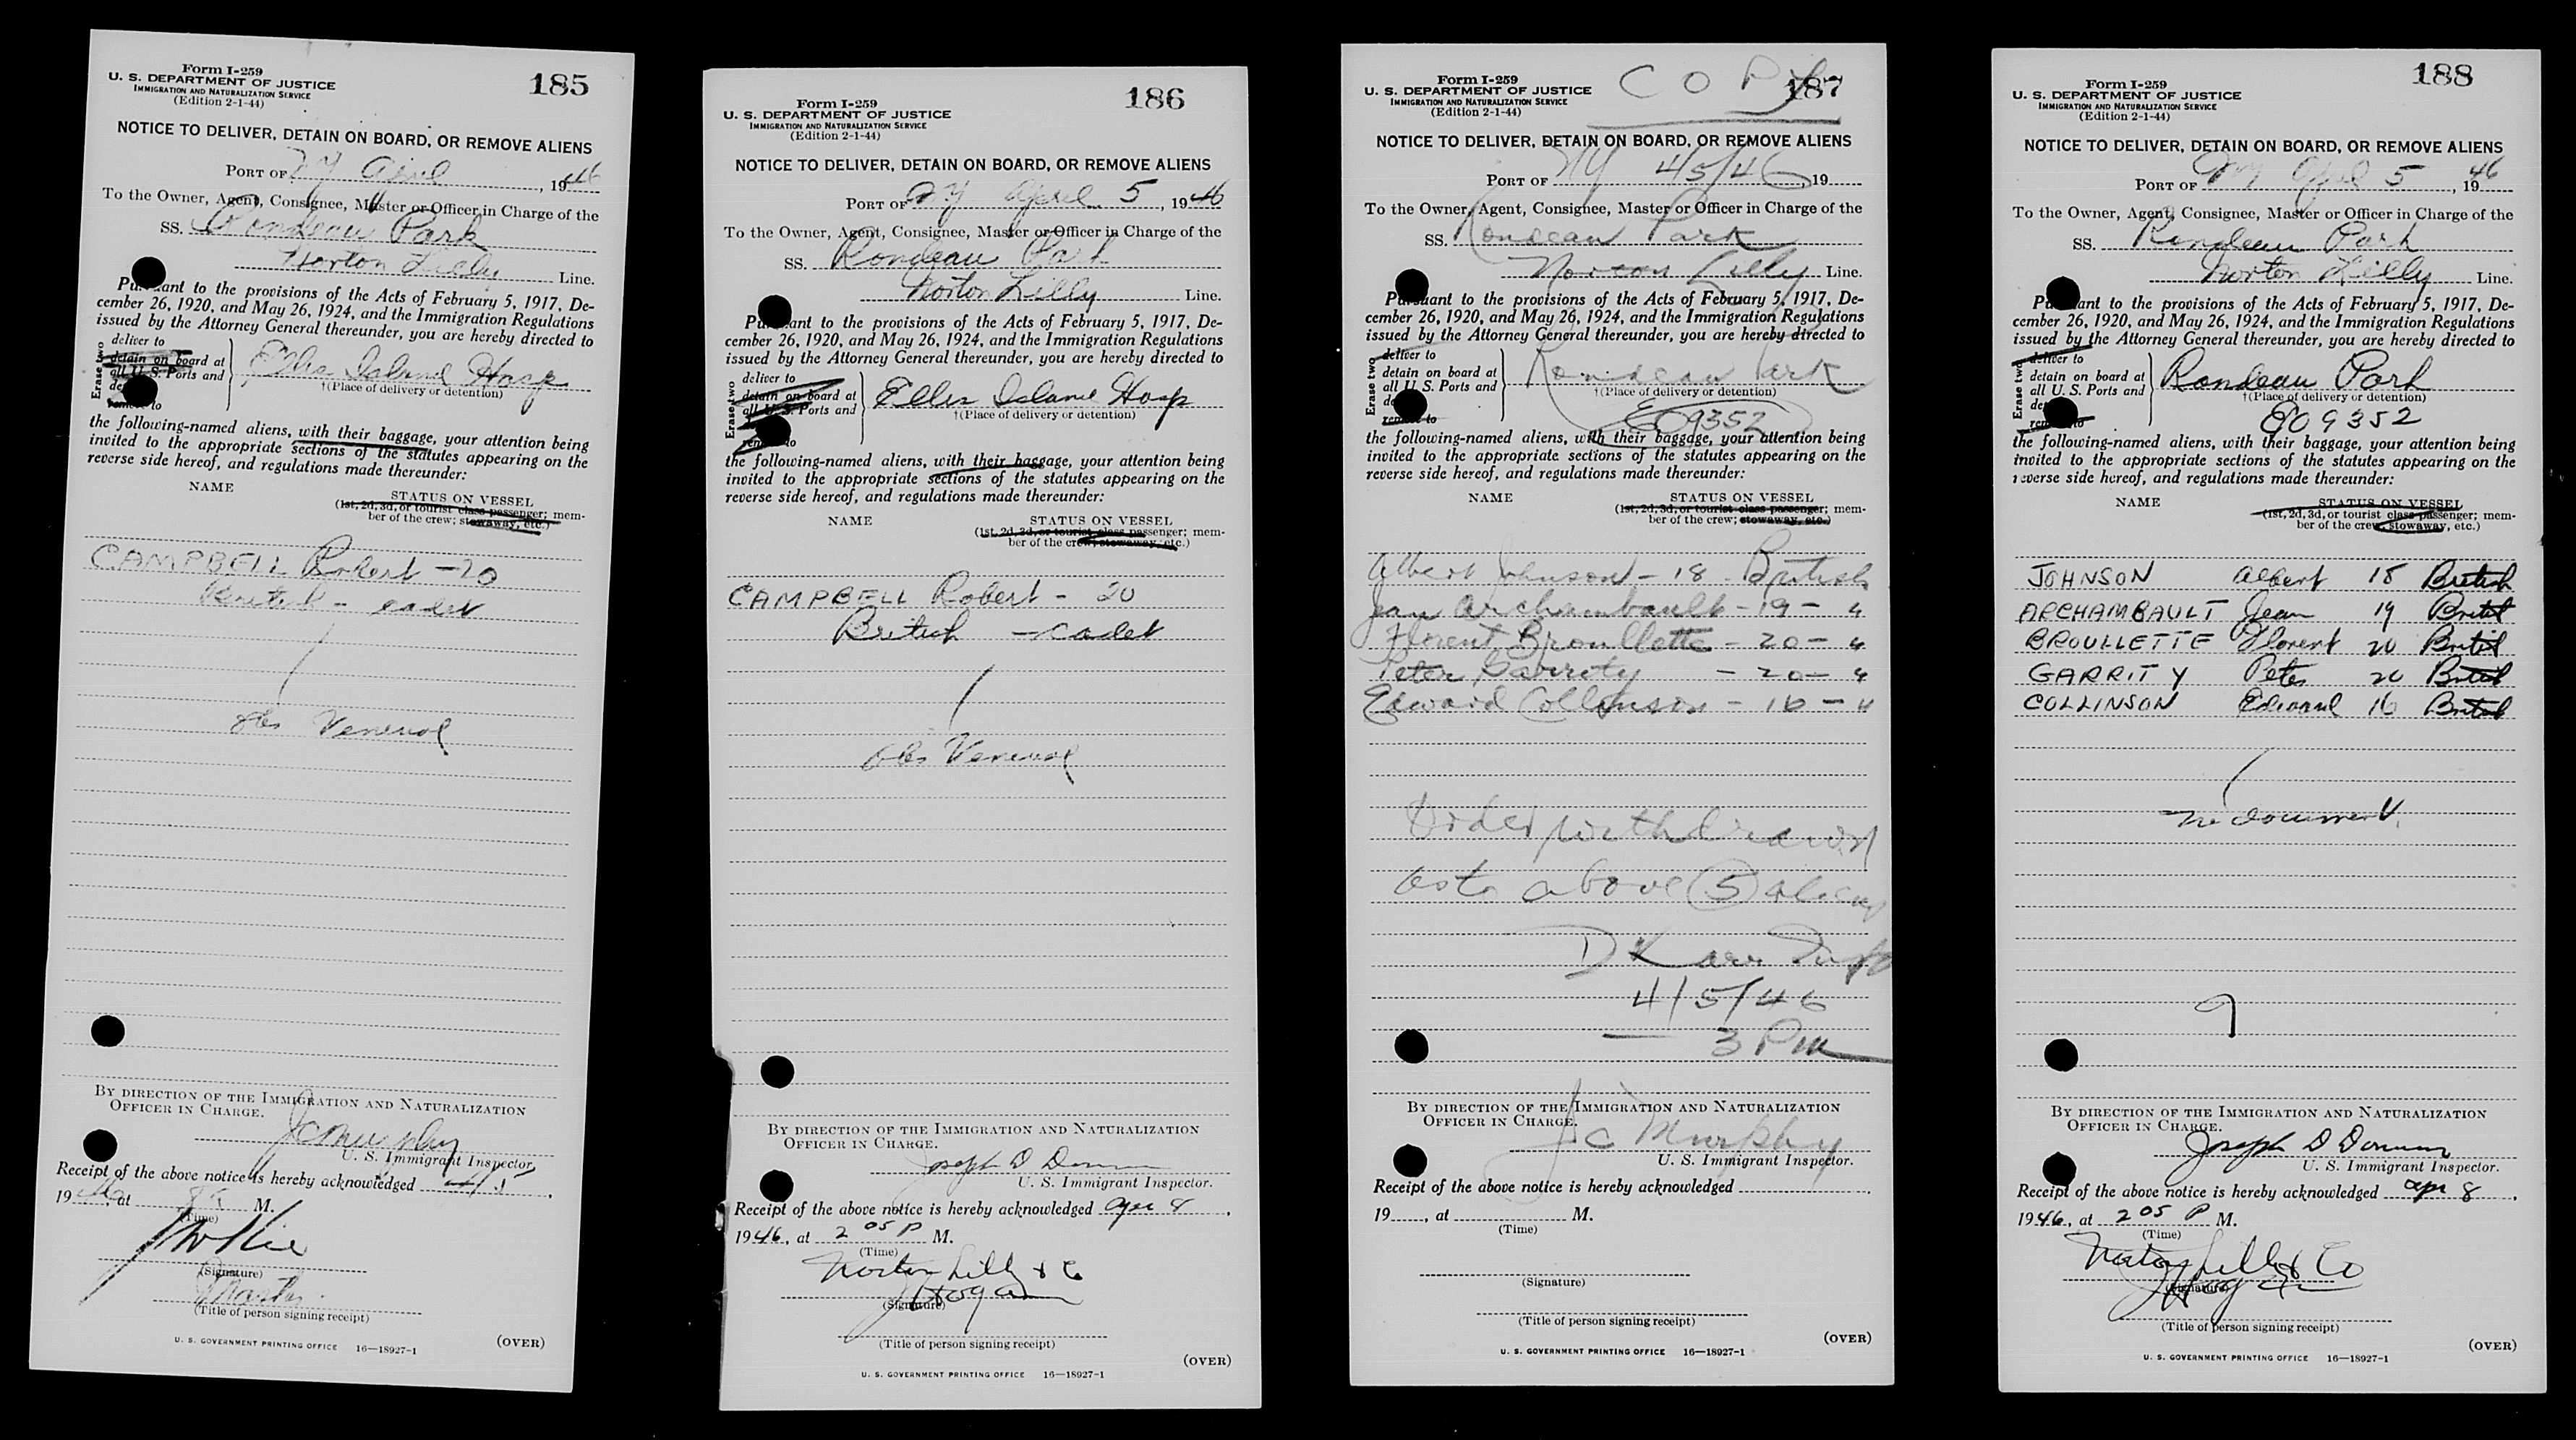 Form I-259
185
U. S. DEPARTMENT OF JUSTICE
IMMIGRATION AND NATURALIZATION SERVICE
(Edition 2-1-44)
NOTICE TO DELIVER, DETAIN ON BOARD, OR REMOVE ALIENS
PORT OF NY April , 1946
To the Owner, Agent, Consignee, Master or Officer in Charge of the
SS. Rondeau Park
Norton Lilly Line.
Pursuant to the provisions of the Acts of February 5, 1917, De-
cember 26, 1920, and May 26, 1924, and the Immigration Regulations
issued by the Attorney General thereunder, you are hereby directed to
Erase two
deliver to
detain on board at
all U. S. Ports and
remove to
Ellis Island Hosp
†(Place of delivery or detention)
the following-named aliens, with their baggage, your attention being
invited to the appropriate sections of the statutes appearing on the
reverse side hereof, and regulations made thereunder:
NAME
STATUS ON VESSEL
(1st, 2d, 3d, or tourist class passenger; mem-
ber of the crew; stowaway, etc.)
CAMPBELL Robert - 20
British - cadet
obs Venereal
BY DIRECTION OF THE IMMIGRATION AND NATURALIZATION
OFFICER IN CHARGE.
JC Murphy
U. S. Immigrant Inspector.
Receipt of the above notice is hereby acknowledged 4/5 ,
1946, at M.
(Time)
(Signature)
Master
(Title of person signing receipt)
U. S. GOVERNMENT PRINTING OFFICE 16—18927-1
(OVER)
Form I-259
186
U. S. DEPARTMENT OF JUSTICE
IMMIGRATION AND NATURALIZATION SERVICE
(Edition 2-1-44)
NOTICE TO DELIVER, DETAIN ON BOARD, OR REMOVE ALIENS
PORT OF NY April 5 , 1946
To the Owner, Agent, Consignee, Master or Officer in Charge of the
SS. Rondeau Park
Norton Lilly Line.
Pursuant to the provisions of the Acts of February 5, 1917, De-
cember 26, 1920, and May 26, 1924, and the Immigration Regulations
issued by the Attorney General thereunder, you are hereby directed to
Erase two
deliver to
detain on board at
all U. S. Ports and
remove to
Ellis Island Hosp
†(Place of delivery or detention)
the following-named aliens, with their baggage, your attention being
invited to the appropriate sections of the statutes appearing on the
reverse side hereof, and regulations made thereunder:
NAME
STATUS ON VESSEL
(1st, 2d, 3d, or tourist class passenger; mem-
ber of the crew; stowaway, etc.)
CAMPBELL Robert - 20
British - cadet
obs Venereal
BY DIRECTION OF THE IMMIGRATION AND NATURALIZATION
OFFICER IN CHARGE.
Joseph D
U. S. Immigrant Inspector.
Receipt of the above notice is hereby acknowledged Apr 8 ,
1946, at 2 05 P M.
(Time)
Norton Lilly & Co
(Signature)
J Hogan
(Title of person signing receipt)
(OVER)
U. S. GOVERNMENT PRINTING OFFICE 16—18927-1
COPY
Form I-259
187
U. S. DEPARTMENT OF JUSTICE
IMMIGRATION AND NATURALIZATION SERVICE
(Edition 2-1-44)
NOTICE TO DELIVER, DETAIN ON BOARD, OR REMOVE ALIENS
PORT OF NY 4/5/46 , 19
To the Owner, Agent, Consignee, Master or Officer in Charge of the
SS. Rondeau Park
Norton Lilly Line.
Pursuant to the provisions of the Acts of February 5, 1917, De-
cember 26, 1920, and May 26, 1924, and the Immigration Regulations
issued by the Attorney General thereunder, you are hereby directed to
Erase two
deliver to
detain on board at
all U. S. Ports and
remove to
Rondeau Park
†(Place of delivery or detention)
EO 9352
the following-named aliens, with their baggage, your attention being
invited to the appropriate sections of the statutes appearing on the
reverse side hereof, and regulations made thereunder:
NAME
STATUS ON VESSEL
(1st, 2d, 3d, or tourist class passenger; mem-
ber of the crew; stowaway, etc.)
Albert Johnson - 18 British
Jean Archambault - 19 - "
Florent Broullette - 20 - "
Peter Garrity - 20 - "
Edward Collinson - 16 - "
Order withdrawn
as to above 5 aliens
D Karr Insp
4/5/46
3 PM
BY DIRECTION OF THE IMMIGRATION AND NATURALIZATION
OFFICER IN CHARGE.
JC Murphy
U. S. Immigrant Inspector.
Receipt of the above notice is hereby acknowledged .
19 , at M.
(Time)
(Signature)
(Title of person signing receipt)
(OVER)
U. S. GOVERNMENT PRINTING OFFICE 16—18927-1
Form I-259
188
U. S. DEPARTMENT OF JUSTICE
IMMIGRATION AND NATURALIZATION SERVICE
(Edition 2-1-44)
NOTICE TO DELIVER, DETAIN ON BOARD, OR REMOVE ALIENS
PORT OF NY April 5 , 1946
To the Owner, Agent, Consignee, Master or Officer in Charge of the
SS. Rondeau Park
Norton Lilly Line.
Pursuant to the provisions of the Acts of February 5, 1917, De-
cember 26, 1920, and May 26, 1924, and the Immigration Regulations
issued by the Attorney General thereunder, you are hereby directed to
Erase two
deliver to
detain on board at
all U. S. Ports and
remove to
Rondeau Park
†(Place of delivery or detention)
EO 9352
the following-named aliens, with their baggage, your attention being
invited to the appropriate sections of the statutes appearing on the
reverse side hereof, and regulations made thereunder:
NAME
STATUS ON VESSEL
(1st, 2d, 3d, or tourist class passenger; mem-
ber of the crew; stowaway, etc.)
JOHNSON Albert 18 British
ARCHAMBAULT Jean 19 British
BROULLETTE Florent 20 British
GARRITY Peter 20 British
COLLINSON Edward 16 British
No document
BY DIRECTION OF THE IMMIGRATION AND NATURALIZATION
OFFICER IN CHARGE.
Joseph D
U. S. Immigrant Inspector.
Receipt of the above notice is hereby acknowledged Apr 8 ,
1946, at 2 05 P M.
(Time)
Norton Lilly & Co
(Signature)
J Hogan
(Title of person signing receipt)
(OVER)
U. S. GOVERNMENT PRINTING OFFICE 16—18927-1